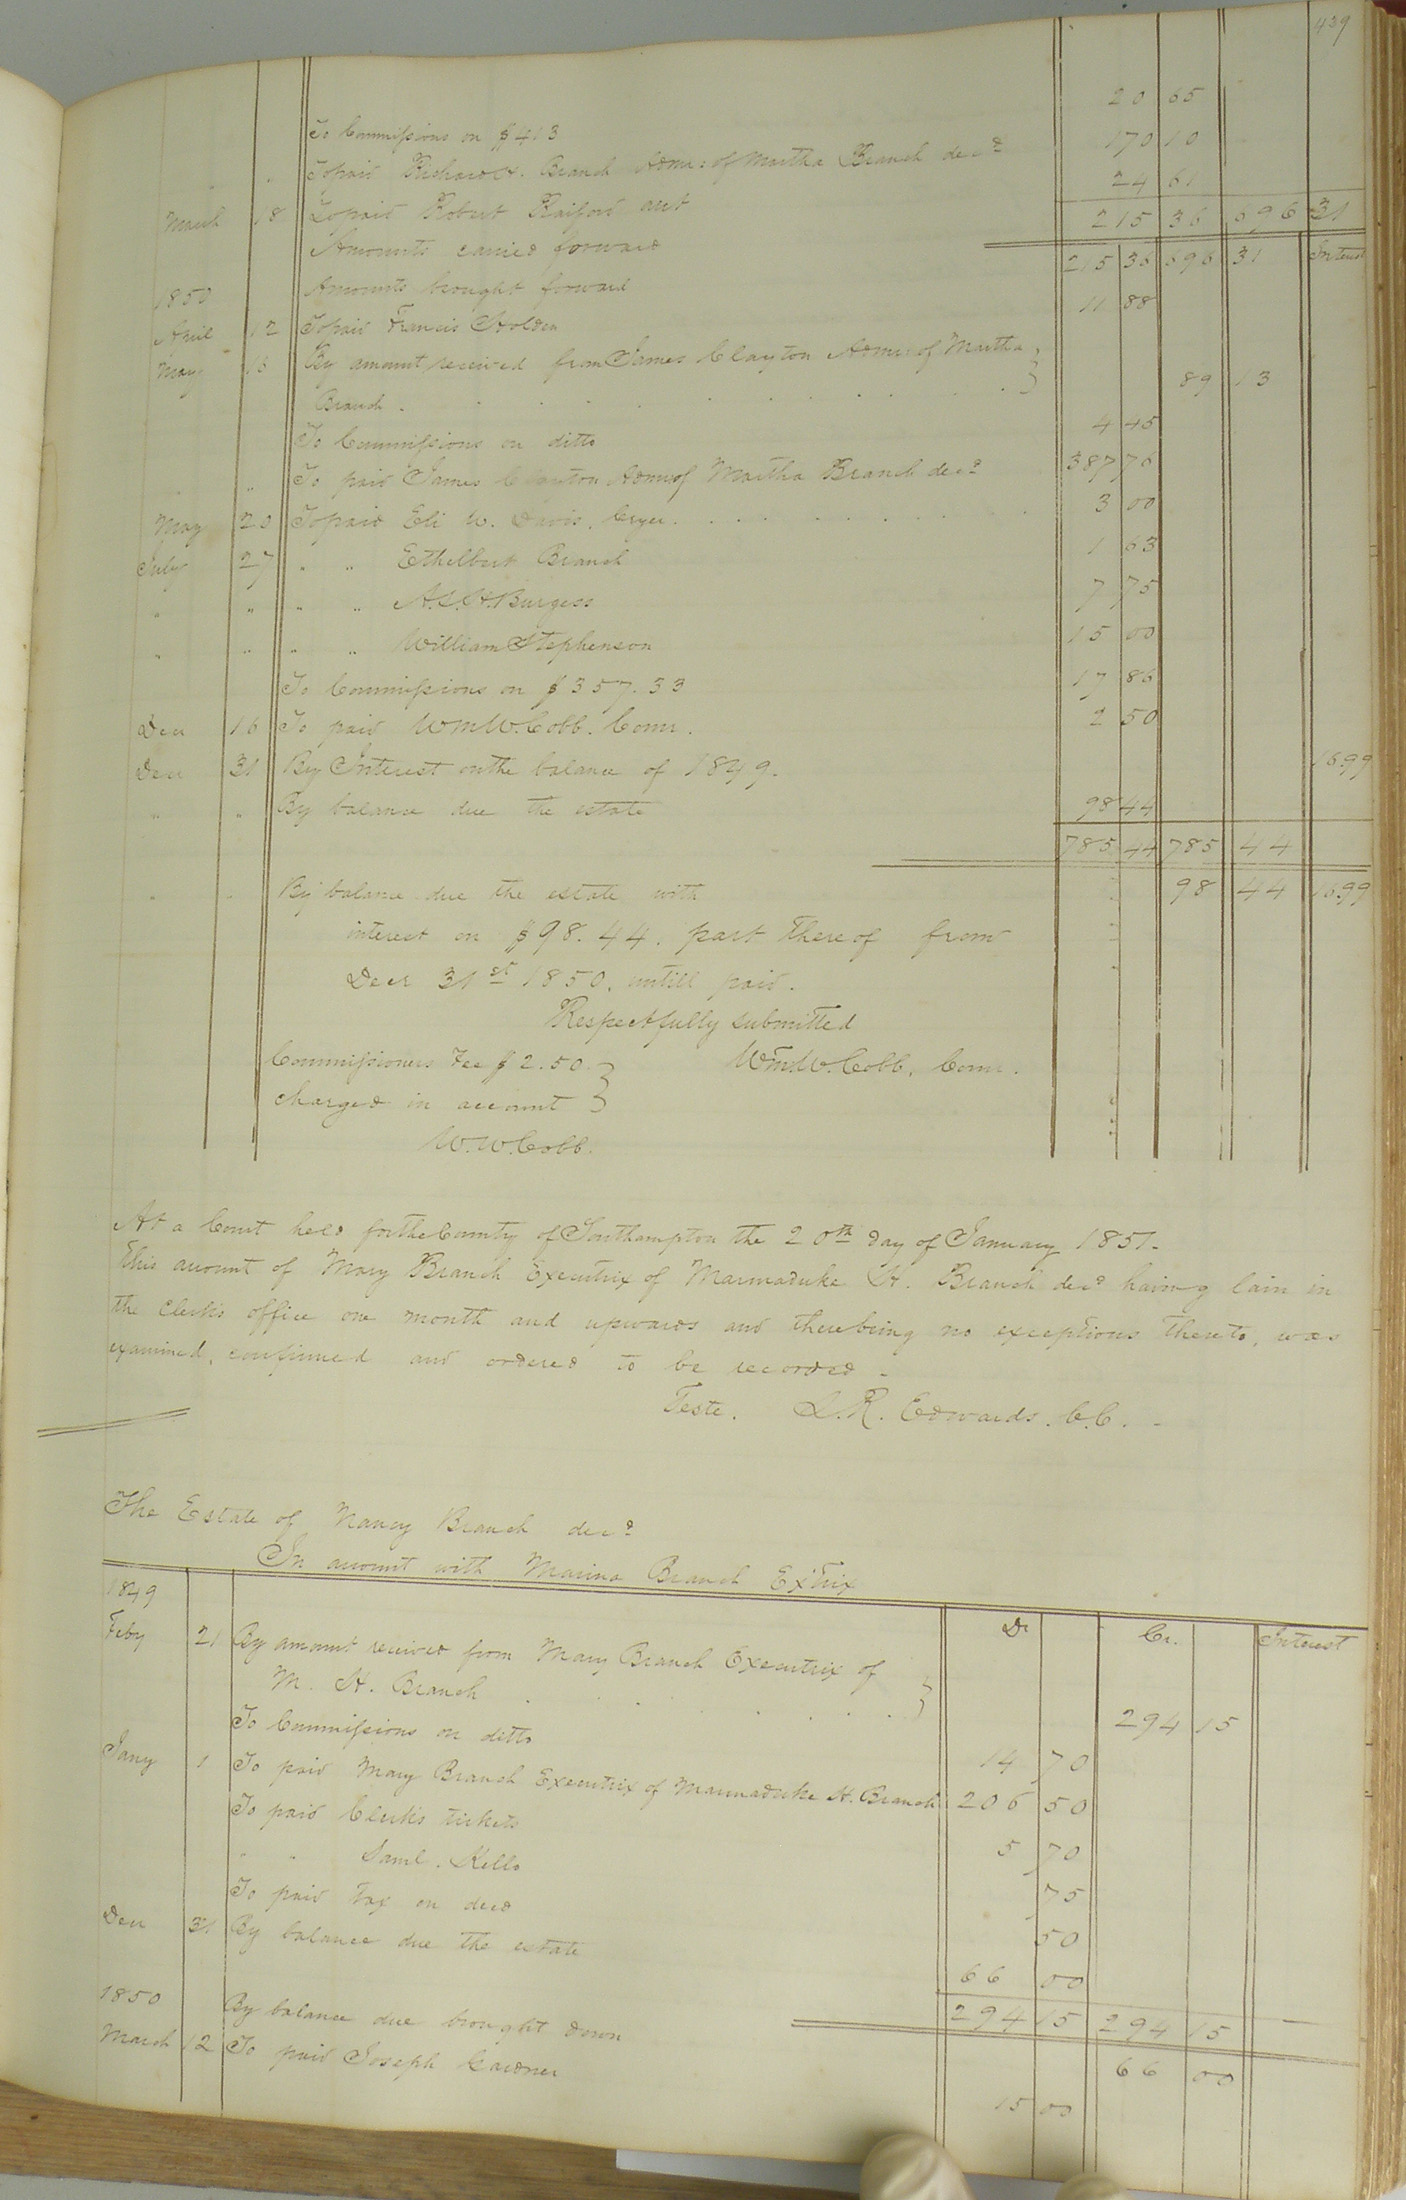 439
To Commissions on $413 20 65
" " To paid Richard H. Branch Admr: of Martha Branch decd 170 10
March 18 To paid Robert Raiford act 24 61
Amounts carried forward 215 36 696 31
1850 Amounts brought forward 215 36 696 31 Interest
April 12 To paid Francis Holden 11 88
May 15 By amount received from James Clayton Admr: of Martha
Branch . 89 13
To Commissions on ditto 4 45
" To paid James Clayton Admr of Martha Branch decd 387 76
May 20 To paid Eli W. Davis, Cryer. 3 00
July 27 " " Ethelbert Branch 1 63
" " " " A.S.H. Burgess 7 75
" " " " William Stephenson 15 00
To Commissions on $357.33 17 86
Decr 16 To paid Wm W. Cobb. Comr. 2 50
Decr 31 By Interest on the balance of 1849. 16.99
" " By balance due the estate 98 44
785 44 785 44
" " By balance due the estate with 98 44 16.99
interest on $98.44. part thereof from
Decr 31st 1850, untill paid.
Respectfully submitted
Commissioners Fee $2.50 Wm. W. Cobb, Comr.
charged in account
W. W. Cobb.
At a Court held for the County of Southampton the 20th day of January 1851.
This account of Mary Branch Executrix of Marmaduke H. Branch decd having lain in
the Clerk's office one month and upwards and there being no exceptions thereto, was
examined, confirmed and ordered to be recorded.
Teste. L. R. Edwards. C.C.
The Estate of Nancy Branch decd
In account with Marina Branch Extrix
1849 Dr Cr. Interest
Feby 21 By amount received from Mary Branch Executrix of
M. H. Branch 294 15
To Commissions on ditto 14 70
Jany 1 To paid Mary Branch Executrix of Marmaduke H. Branch 206 50
To paid Clerks tickets 5 70
" " Saml. Kello 75
To paid tax on deed 50
Decr 31 By balance due the estate 66 00
294 15 294 15
1850 By balance due brought down 66 00
March 12 To paid Joseph Gardner 15 00